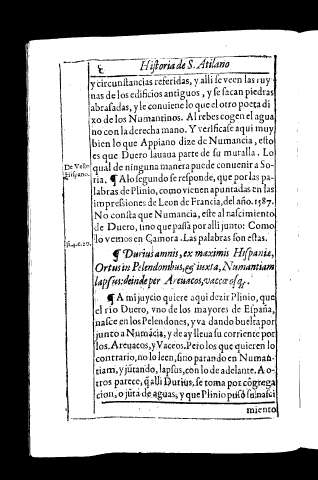 Historia de S. Atilano
y circunstancias referidas, y alli se veen las ruy
nas de los edificios antiguos, y se sacan piedras
abrasadas, y le conuiene lo que el otro poeta di
xo de los Numantinos. Al rebes cogen el agua,
no con la derecha mano. Y verificase aqui muy
bien lo que Appiano dize de Numancia, esto
es que Duero lauaua parte de su muralla. Lo
qual de ninguna manera puede conuenir a So-
De Vello
Hispano.
ria. ¶ A lo segundo se responde, que por las pa-
labras de Plinio, como vienen apuntadas en las
impressiones de Leon de Francia, del año. 1587.
No consta que Numancia, esté al nascimiento
de Duero, sino que passa por alli junto: Como
lo vemos en Çamora. Las palabras son estas.
li. 4. c. 20.
¶ Durius amnis, ex maximis Hispaniæ,
Ortus in Pelendonibus, & iuxta, Numantiam
lapsus: deinde per Areuacos, vaccæosq́.
¶ A mi juycio quiere aqui dezir Plinio, que
el rio Duero, vno de los mayores de España,
nasce en los Pelendones, y va dando buelta por
junto a Numãcia, y de ay lleua su corriente por
los. Areuacos, y Vaceos. Pero los que quieren lo
contrario, no lo leen, sino parando en Numan-
tiam, y jũtando, lapsus, con lo de adelante. A o-
tros parece, q̃ alli Durius, se toma por cõgrega
cion, o jũta de aguas, y que Plinio puso se nasci
miento